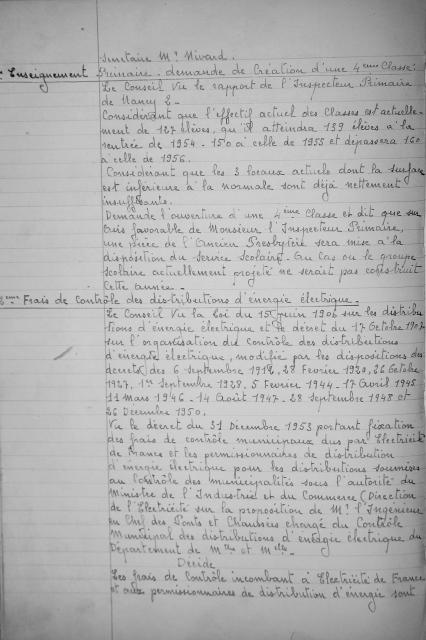 Secrétaire Mr Nivard.
Enseignement Primaire - demande de Création d'une 4eme Classe:
Le Conseil Vu le rapport de l'Inspecteur Primaire
de Nancy 2 -
Considérant que l'effectif actuel des Classes est actuelle-
ment de 127 élèves, qu'il atteindra 139 élèves à la
rentrée de 1954 - 150 à celle de 1955 et dépassera 160
à celle de 1956.
Considérant que les 3 locaux actuels dont la surface
est inférieure à la normale sont déjà nettement
insuffisants.
Demande l'ouverture d'une 4ème Classe et dit que sur
Avis favorable de Monsieur l'Inspecteur Primaire,
une pièce de l'Ancien Presbytère sera mise à la
disposition du Service Scolaire. Au Cas ou le groupe
scolaire actuellement projeté ne serait pas construit
Cette année.
2eme - Frais de Contrôle des distributions d'énergie électrique.
Le Conseil Vu la Loi du 15 Juin 1906 sur les distribu-
tions d'énergie électrique et le décret du 17 Octobre 1907
sur l'organisation du Contrôle des distributions
d'énergie électrique, modifié par les dispositions des
décrets des 6 septembre 1912, 28 Fevrier 1920, 26 Octobre
1927, 1er Septembre 1928, 5 Fevrier 1944 - 17 Avril 1945
11 Mars 1946 - 14 Août 1947 - 28 septembre 1948 et
26 Decembre 1950.
Vu le décret du 31 Décembre 1953 portant fixation
des frais de contrôle municipaux dus par Electricité
de France et les permissionnaires de distribution
d'énergie électrique pour les distributions soumises
au Contrôle des municipalités sous l'autorité du
Ministre de l'Industrie et du Commerce (Direction
de l'Electricité sur la proposition de Mr l'Ingénieur
en Chef des Ponts et Chaussées chargé du Contrôle
Municipal des distributions d'énergie électrique du
Département de Mthe et Mlle.
Décide
Les frais de Contrôle incombant à Electricité de France
et aux permissionnaires de distribution d'énergie sont